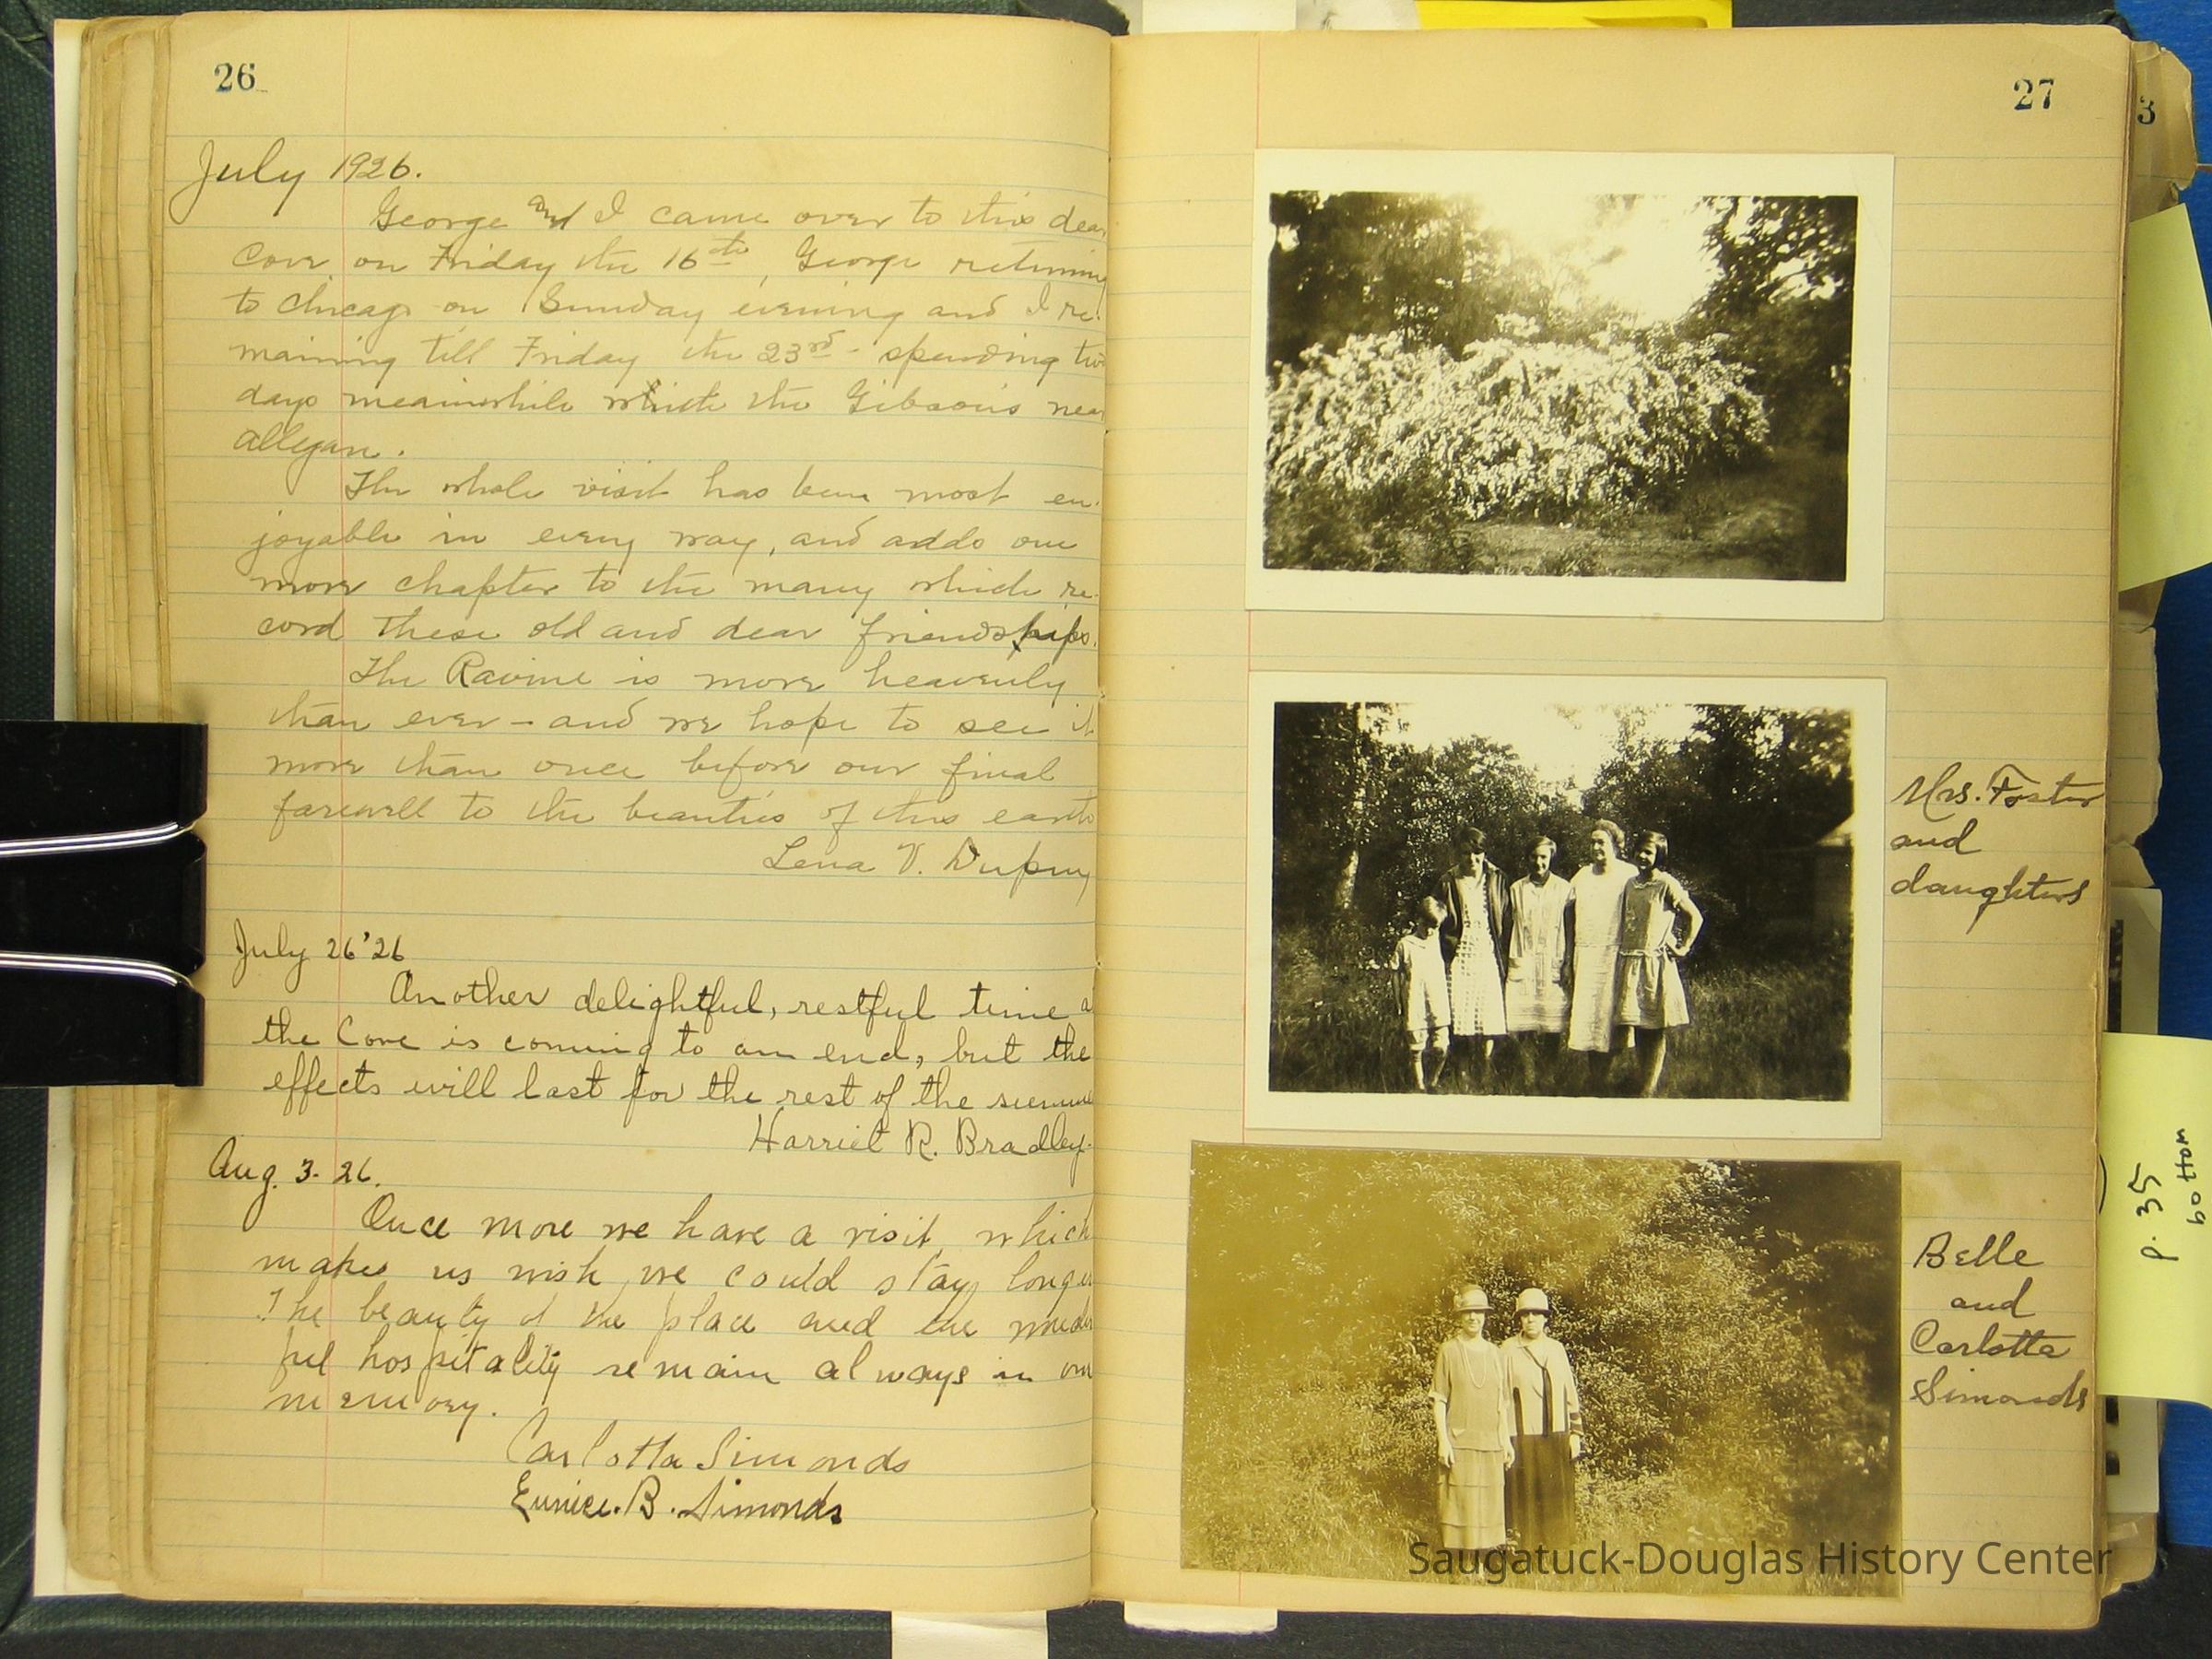 26
July 1926.
George and I came over to this dear
Cove on Friday the 16th, George returning
to Chicago on Sunday evening and I re-
maining till Friday the 23rd - spending two
days meanwhile with the Gibsons near
Allegan.
The whole visit has been most en-
joyable in every way, and adds one
more chapter to the many which re-
cord these old and dear friendships.
The Ravine is more heavenly
than ever - and we hope to see it
more than once before our final
farewell to the beauties of this earth
Lena V. Dupuy
July 26 '26
Another delightful, restful time a
the Cove is coming to an end, but the
effects will last for the rest of the summe
Harriet R. Bradley.
Aug. 3. 26.
Once more we have a visit which
makes us wish we could stay longer
The beauty of the place and the wonder
ful hospitality remain always in our
memory.
Carlotta Simonds
Eunice. B. Simonds
27
3
Mrs. Foster
and
daughters
Belle
and
Carlotta
Simonds
p. 35
bottom
Saugatuck-Douglas History Center